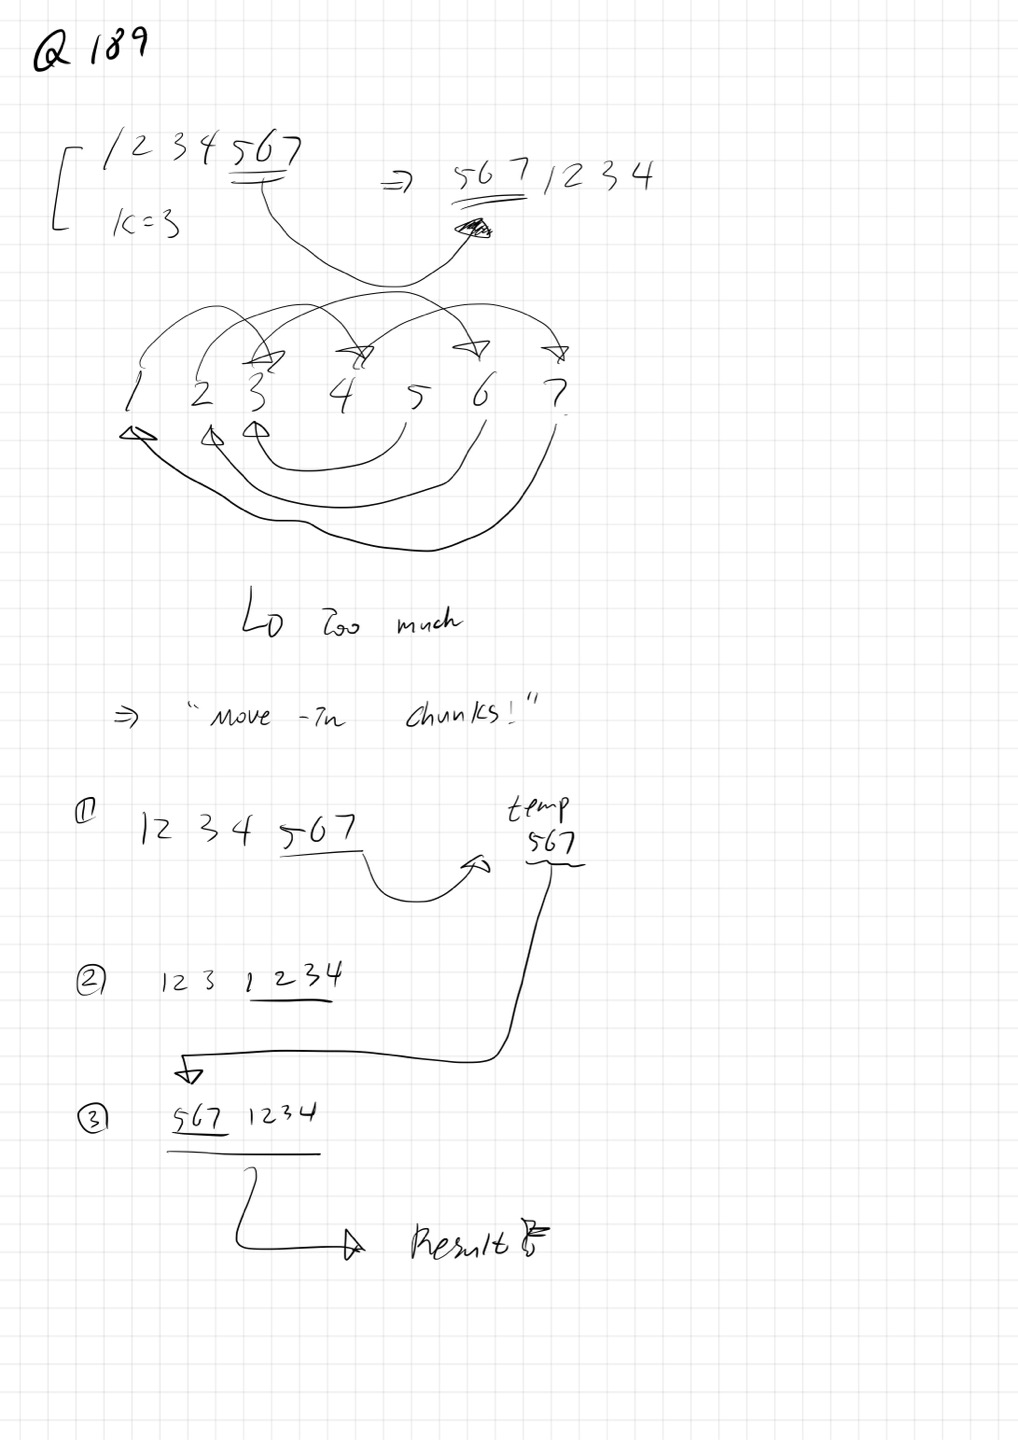 Q 189
1 2 3 4 5 6 7 ⇒ 5 6 7 1 2 3 4
k=3
1 2 3 4 5 6 7
Too much
⇒ "Move -In chunks!"
① 1 2 3 4 5 6 7
temp
567
② 1 2 3 1 2 3 4
③ 567 1234
Result